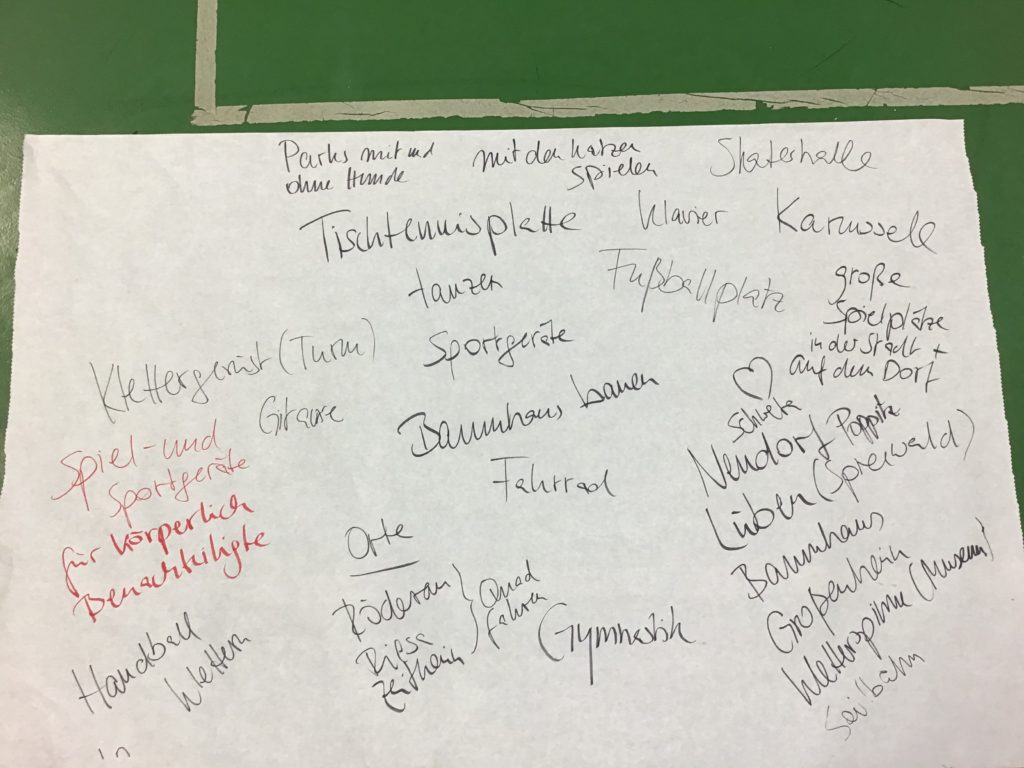 Parks mit und
ohne Hunde
mit den Katzen
spielen
Skatehalle
Tischtennisplatte
Klavier
Karussell
tanzen
Fußballplatz
große
Spielplätze
in der Stadt +
auf dem Dorf
Klettergerüst (Turm)
Sportgeräte
Gitarre
Baumhaus bauen
Fahrrad
Spiel- und
Sportgeräte
für körperlich
Benachteiligte
Neudorf Poppitz
Lüben (Spreewald)
Baumhaus
Großenhain
(Museum)
Seilbahn
Orte
Röderau
Riesa
Zeithain
Quad
fahren
Gymnastik
Handball
klettern
in